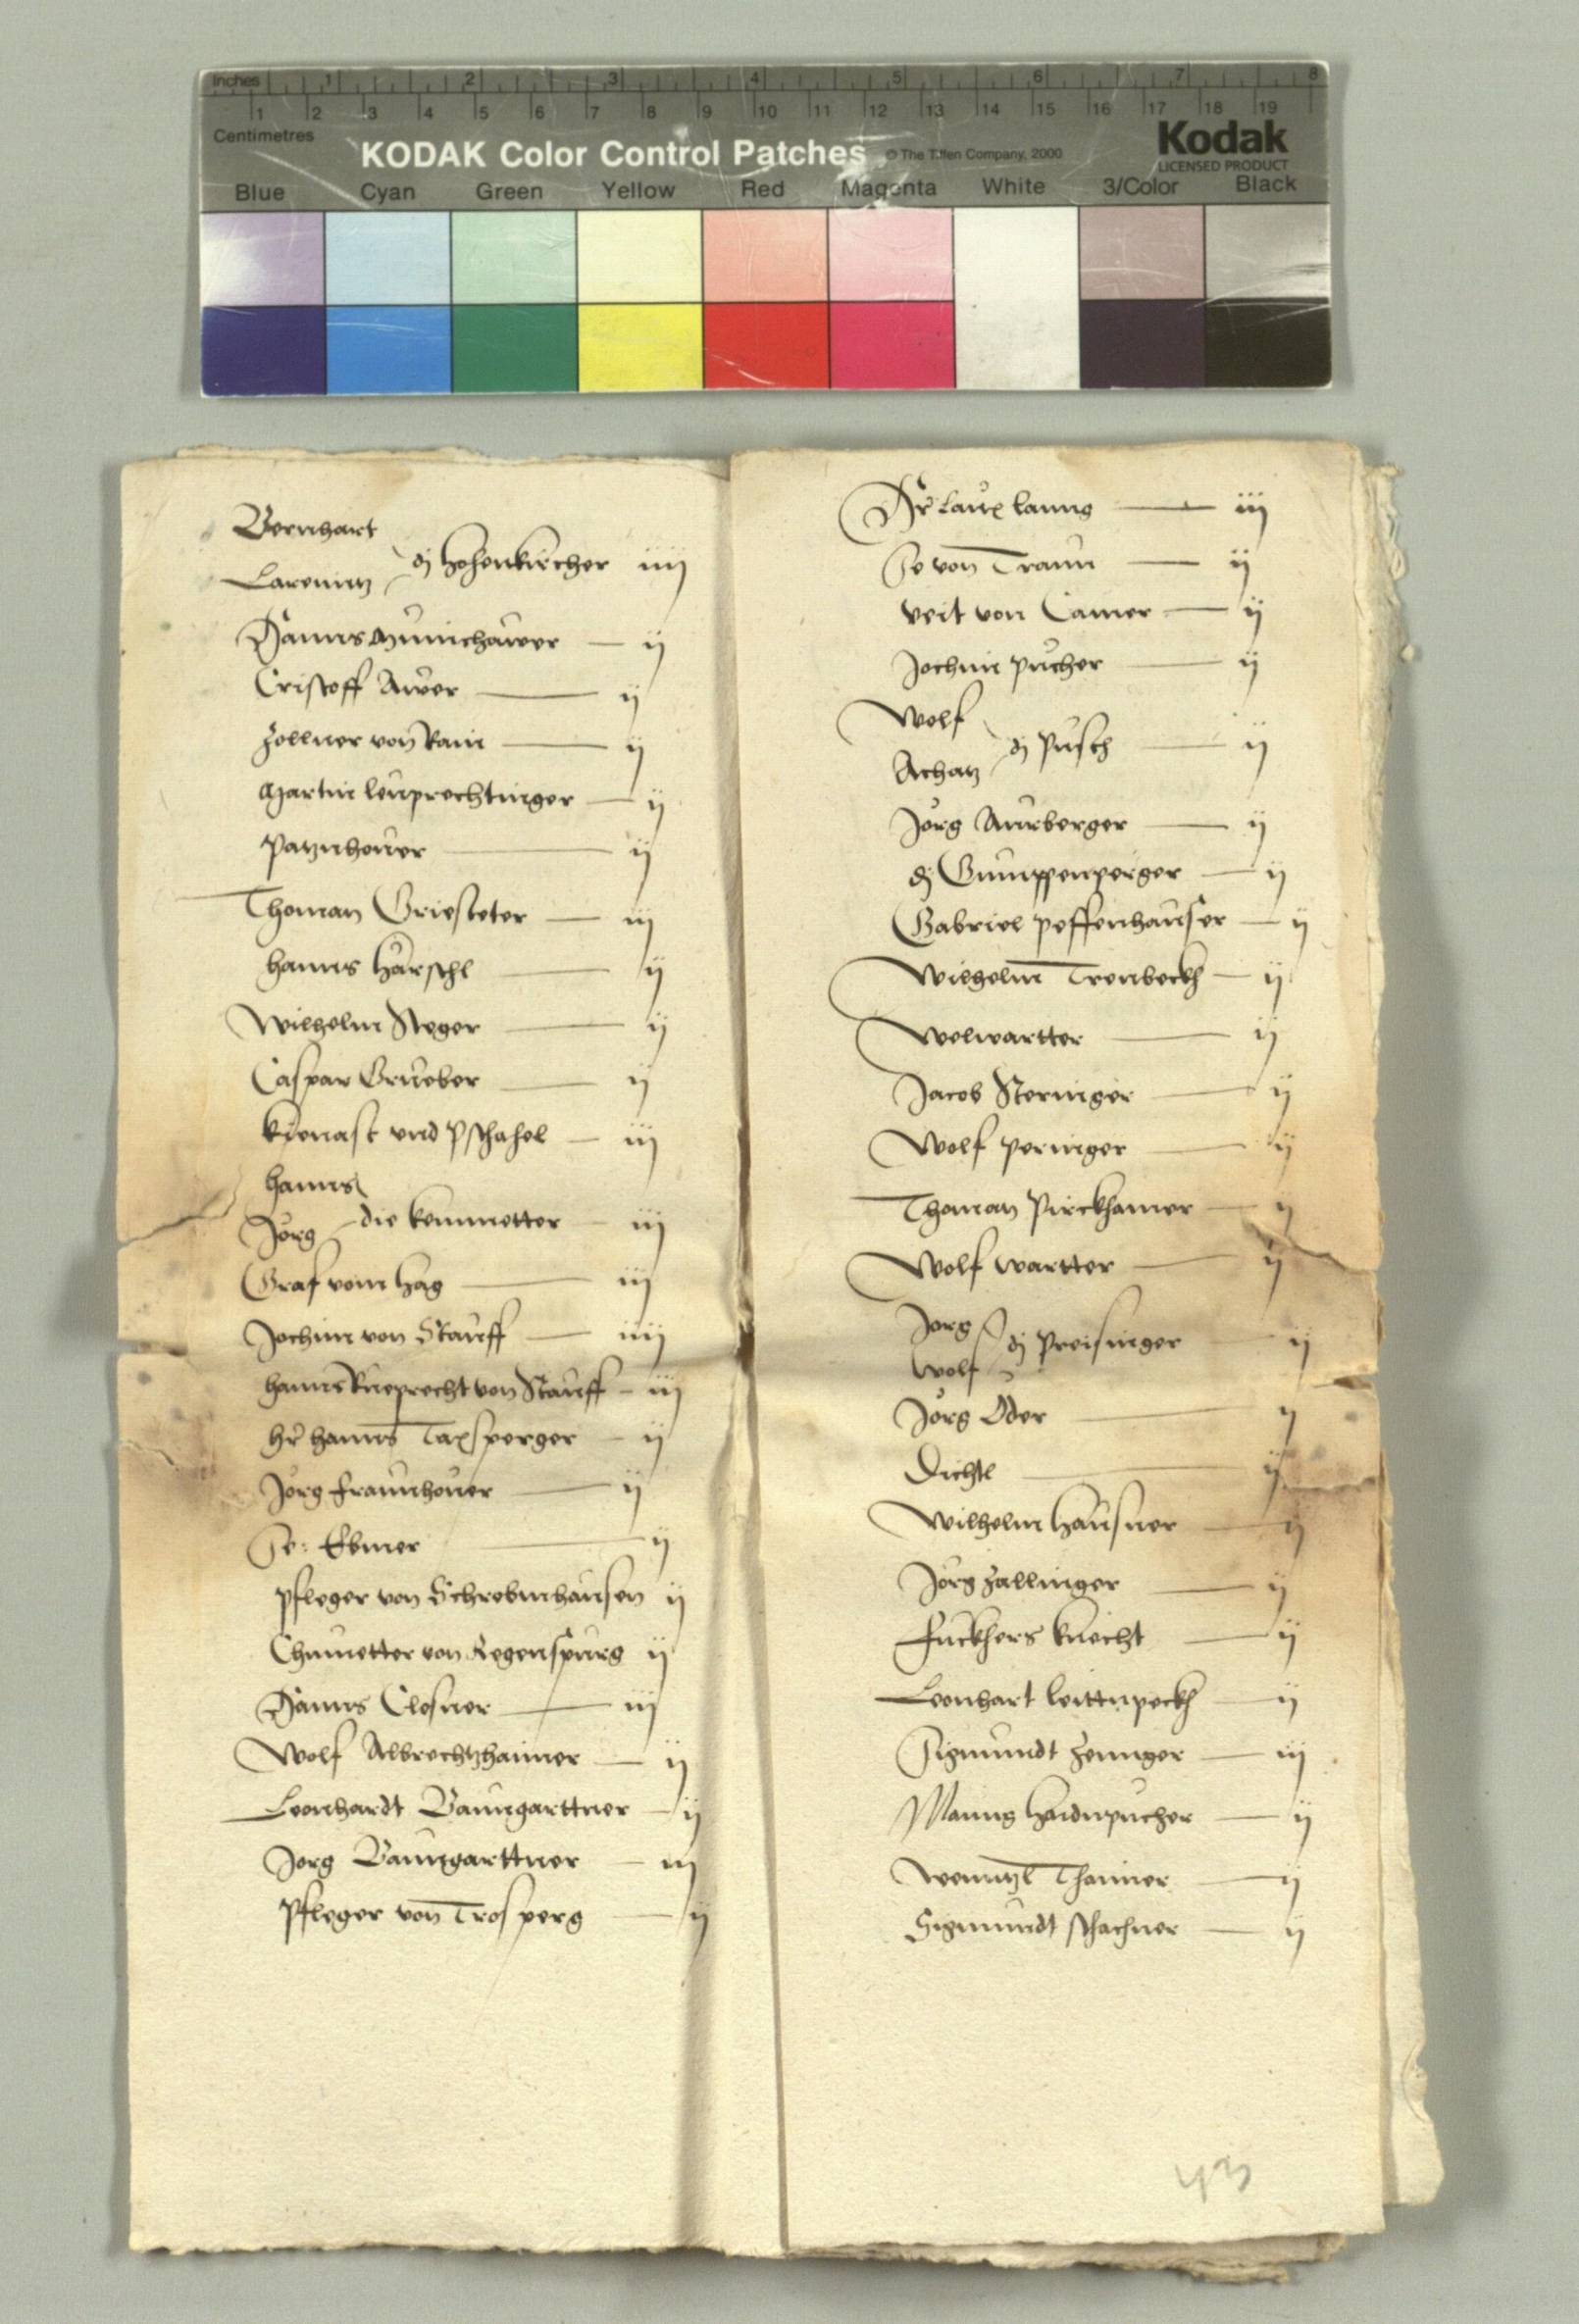 Inches 1 2 3 4 5 6 7 8
1 2 3 4 5 6 7 8 9 10 11 12 13 14 15 16 17 18 19
Centimetres
KODAK Color Control Patches © The Tiffen Company, 2000
Kodak
LICENSED PRODUCT
Blue Cyan Green Yellow Red Magenta White 3/Color Black
Bernhart
dj hohenkircher iiij
Larenntz
Hanns Münichawer ij
Cristoff Awer ij
Zollner von Rain ij
Martin leuprechtinger ij
Patznhouer ij
Thoman Griesteter iij
hanns Härschl ij
Wilhelm Steger ij
Caspar Grueber ij
kienast vnd iij
hanns
die kemmetter iij
Jörg
Graf vom hag iij
Jochim von Stauff iiij
hanns Rueprecht von Stauff iij
hr hanns Taxsperger ij
Jörg fraunhouer ij
Se: Ebmer ij
pfleger von Schrobmhausen ij
Chumetter von Regenspurg ij
Hanns Closner iij
Wolf Albrechtzhaimer ij
Leonhardt Baumgarttner ij
Jorg Baumgarttner iij
Pfleger von Trosperg ij
Hr Laux lanng iij
Se von Traun ij
veit von Camer ij
Jochim pucher ij
Wolf
dj Pusch ij
Achatz
Jörg Aurberger ij
dj Gumppenperger ij
Gabriel peffenhauser ij
Wilhelm Trenbeckh ij
Wolwartter ij
Jacob Sterniger ij
Wolf perniger ij
Thoman Pirckhamer ij
Wolf wartter ij
Jorg
dj Preisinger ij
Wolf
Jörg Öder ij
Dichtl ij
Wilhelm hausner ij
Jörg Zallinger ij
fuckhers knecht ij
Leonhart leittnpeckh ij
Sigmundt Zennger iij
Manng haidnpucher ij
Wenntzl Thanner ij
Sigmundt schachner ij
43